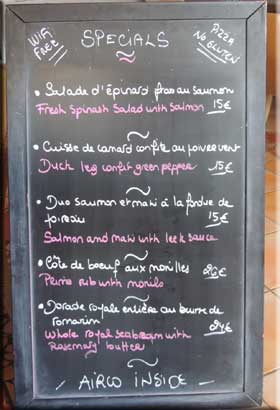 WiFi
FREE
SPECIALS
PIZZA
NO GLUTEN
• Salade d'épinard frais au saumon
Fresh Spinash Salad with Salmon 15€
• Cuisse de canard confite au poivre vert
Duck leg confit green pepper 15€
• Duo saumon et mahi à la fondue de
poireau 15€
Salmon and mahi with leek sauce
• Côte de boeuf aux morilles
Prime rib with morils
• Dorade royale entière au beurre de
romarin 24€
Whole royal seabream with
Rosemary butter
AIRCO INSIDE